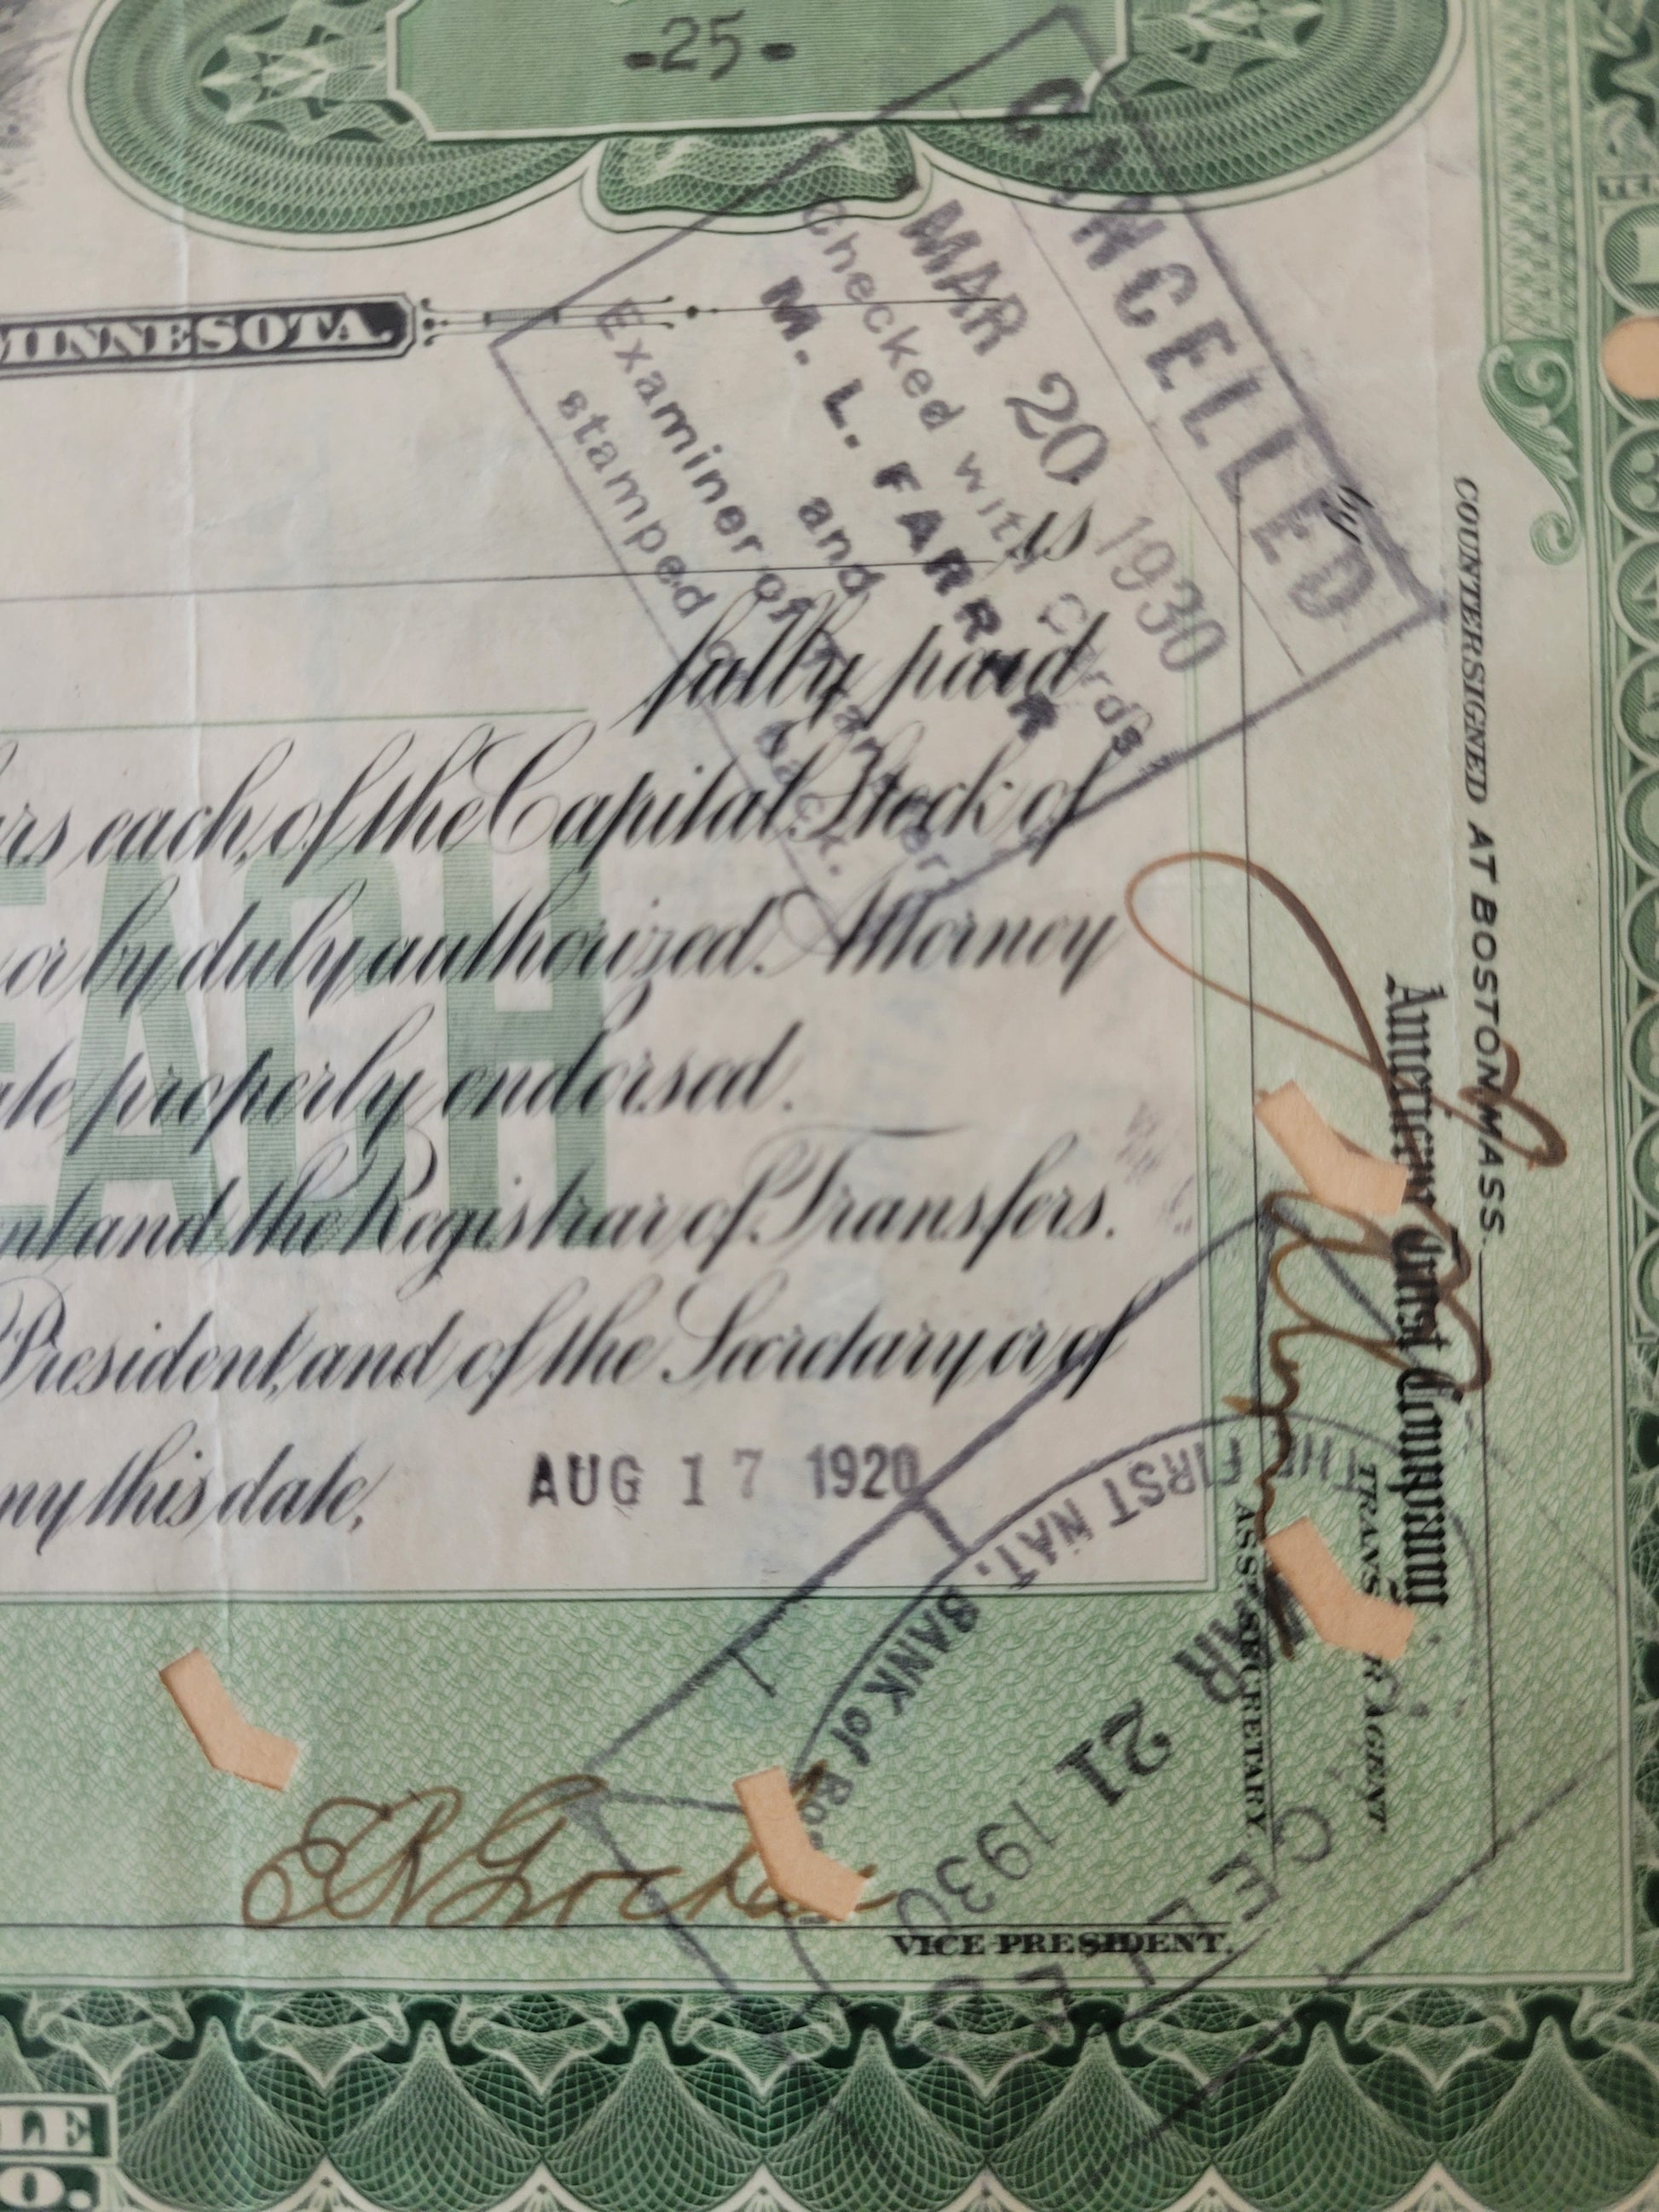 -25-
MINNESOTA.
is
fully paid
each, of the Capital Stock of
or by duly authorized Attorney
properly endorsed.
and the Registrar of Transfers.
President, and of the Secretary or of
this date,
AUG 17 1920
VICE PRESIDENT.
CANCELLED
MAR 20 1930
Checked with Cards
M. L. FARRAR
and
Examiner of
stamped
back.
COUNTERSIGNED AT BOSTON, MASS.
American Trust Company
TRANSFER AGENT.
by
ASST. SECRETARY.
THE FIRST NAT. BANK of Boston
MAR 21 1930
CELLED
EACH
LE
O.